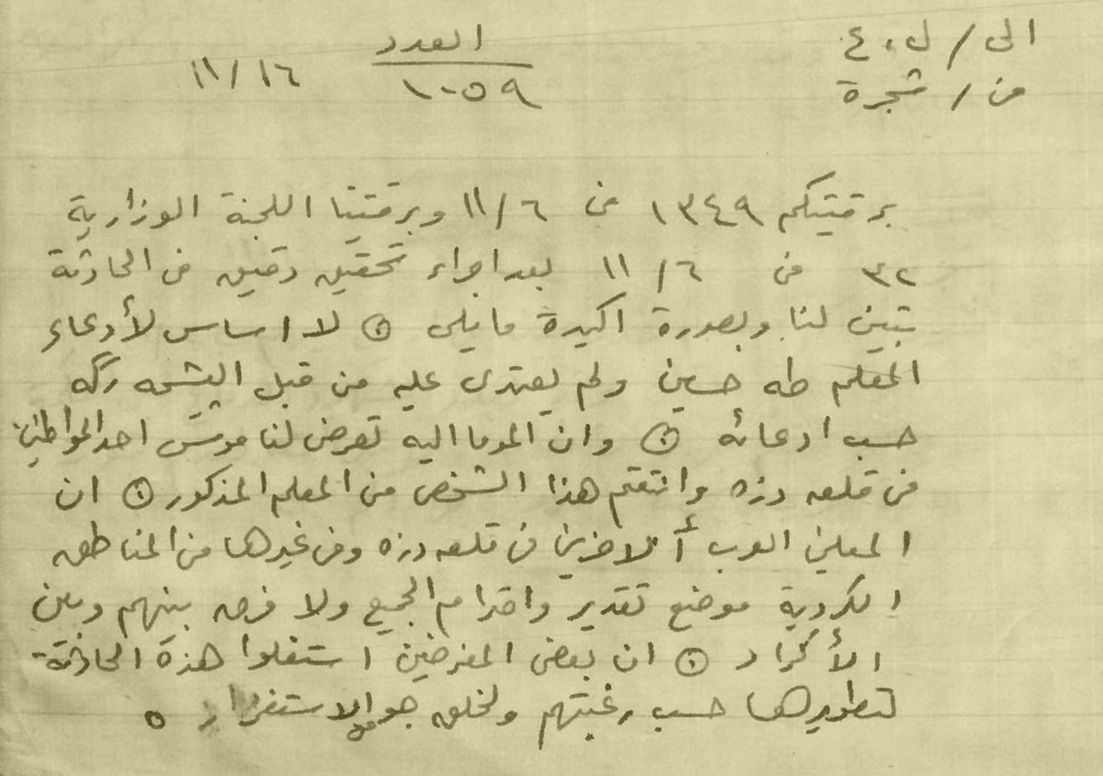 الى / ل ، ٤
العدد
١٠٥٩
١١/١٦
من / شجرة
برقيتكم ١٣٤٩ في ١١/٦ وبرقيتنا اللجنة الوزارية
٣٢ في ١١/٦ بعد اجراء تحقيق دقيق في الحادثة
تبين لنا وبصورة اكيدة ما يلي ⊙ لا اساس لأدعاء
المعلم طه حسين ولم يعتدى عليه من قبل البيشمه رگه
حسب ادعائه ⊙ وان الموما اليه تعرض لنا احد المواطنين
في قلعه دزه وانتقم هذا الشخص من المعلم المذكور ⊙ ان
المعلمين العرب ألاخرين في قلعه دزه وفي غيرها من المناطق
الكردية موضع تقدير واحترام الجميع ولا فرق بينهم وبين
الأكراد ⊙ ان بعض المغرضين استغلوا هذة الحادثة
لتطويرها حسب رغبتهم ولخلق جو